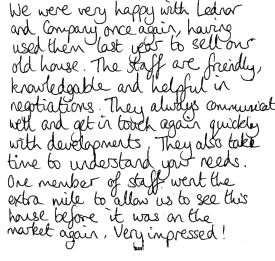 We were very happy with Lednor
and Company once again, having
used them last year to sell our
old house. The staff are friendly,
knowledgable and helpful in
negotiations. They always communicate
well and get in touch again quickly
with developments. They also take
time to understand your needs.
One member of staff went the
extra mile to allow us to see this
house before it was on the
market again. Very impressed!